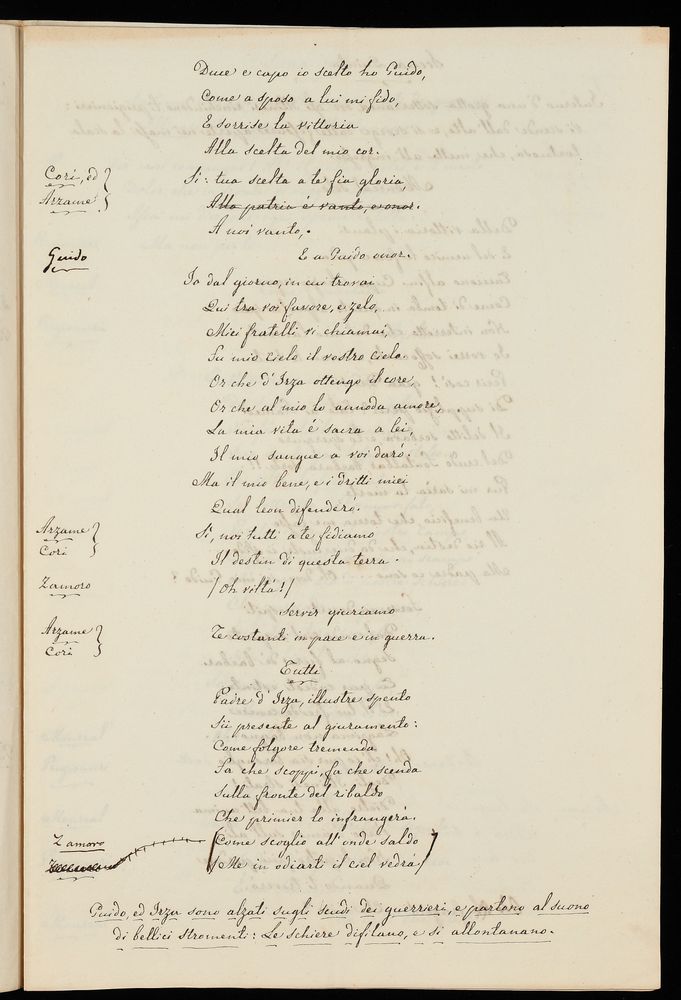 Duce e capo io scelto ho Guido,
Come a sposo a lui mi fido,
E sorrise la vittoria
Alla scelta del mio cor.
Cori, ed Arzame} Sì: tua scelta a te fia gloria,
Alla patria è vanto, e onor.
A noi vanto,.
E a Guido onor.
Guido Io dal giorno, in cui trovai
Qui tra voi favore, e zelo,
Miei fratelli vi chiamai,
Fu mio cielo il vostro cielo.
Or che d'Irza ottengo il core,
Or che al mio lo annoda amore,
La mia vita è sacra a lei,
Il mio sangue a voi darò.
Ma il mio bene, e i dritti miei
Qual leon difenderò.
Arzame Cori} Sì, noi tutti a te fidiamo
Il destin di questa terra.
Zamoro /Oh viltà!/
Servir giuriamo
Arzame Cori} Te costanti in pace e in guerra.
Tutti
Padre d'Irza, illustre spento
Sii presente al giuramento:
Come folgore tremenda
Fa che scoppi, fa che scenda
Sulla fronte del ribaldo
Che primier lo infrangerà.
Zamoro (Come scoglio all'onde saldo
/Me in odiarti il ciel vedrà)
Guido, ed Irza sono alzati sugli scudi dei guerrieri, e partono al suono
di bellici stromenti: Le schiere difilano, e si allontanano.